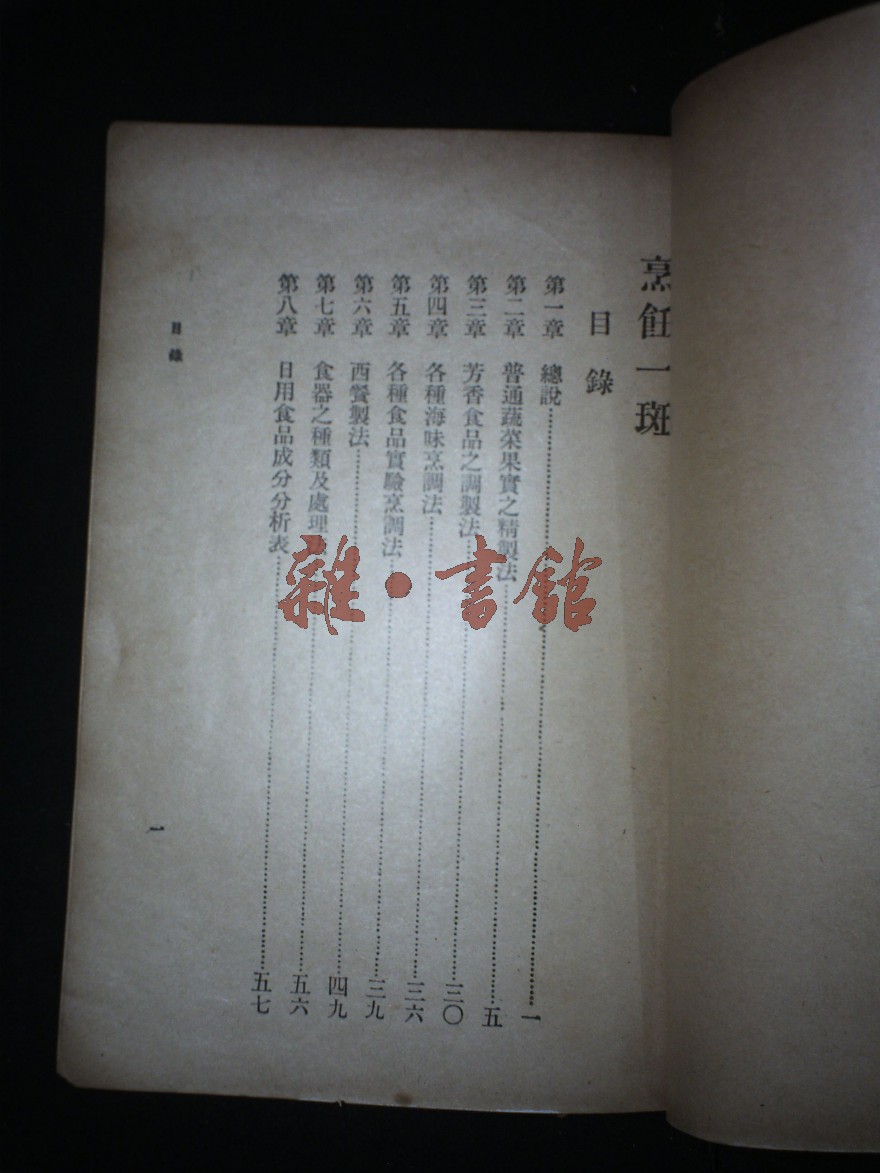 烹飪一斑
目錄
第一章 總說 一
第二章 普通蔬菜果實之精製法 五
第三章 芳香食品之調製法 三〇
第四章 各種海味烹調法 三六
第五章 各種食品實驗烹調法 三九
第六章 西餐製法 四九
第七章 食器之種類及處理法 五六
第八章 日用食品成分分析表 五七
目錄
一
雜·書館